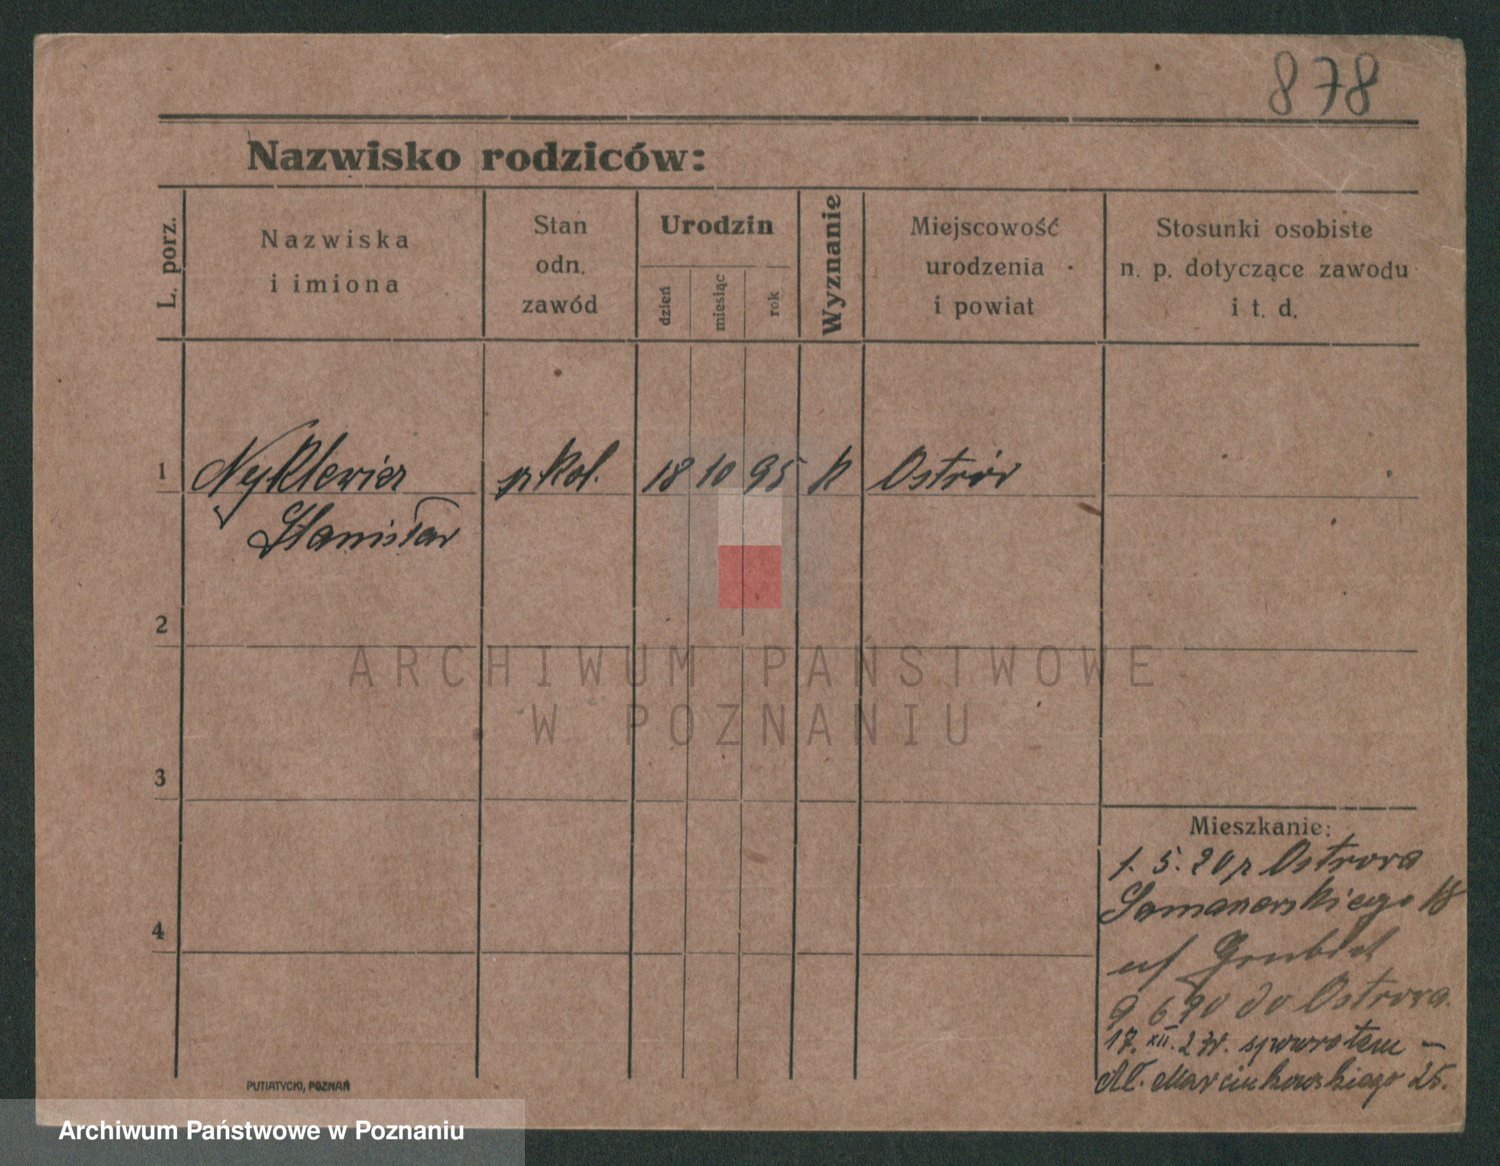 878
Nazwisko rodziców:
L. porz.
Nazwiska
i imiona
Stan
odn.
zawód
Urodzin
dzień
miesiąc
rok
Wyznanie
Miejscowość
urodzenia
i powiat
Stosunki osobiste
n. p. dotyczące zawodu
i t. d.
1 Nyklewicz 18 10 95 k Ostrów
Stanisław
2
3
4
ARCHIWUM PAŃSTWOWE
W POZNANIU
Mieszkanie:
1. 5. 20 z Ostrowa
18
9 6 20 do Ostrowa.
17. XII. spowrotem —
Al. Marcinkowskiego 25.
PUTIATYCKI, POZNAŃ
Archiwum Państwowe w Poznaniu